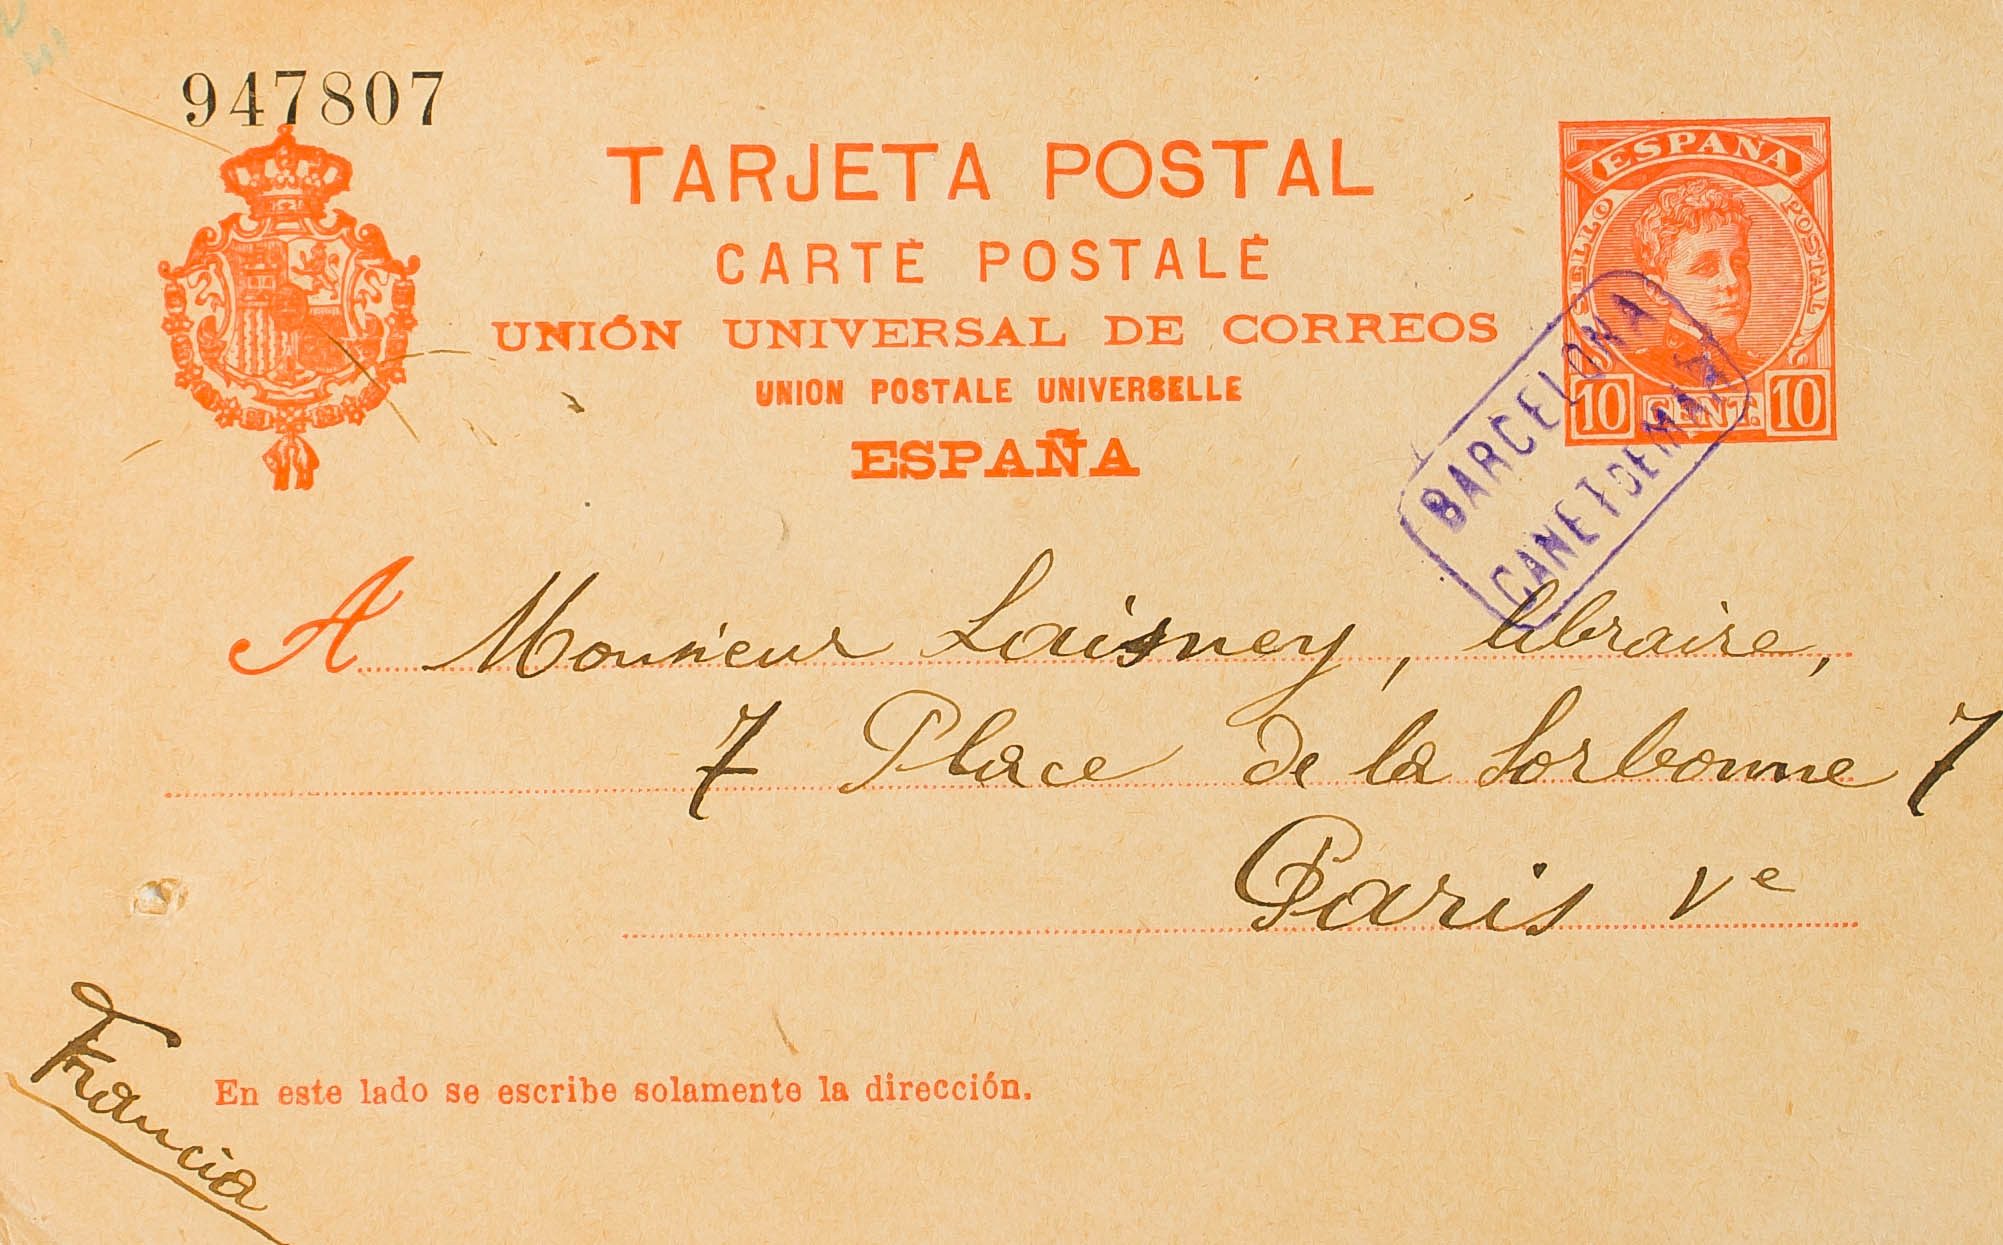 947807
TARJETA POSTAL
CARTE POSTALE
UNIÓN UNIVERSAL DE CORREOS
UNION POSTALE UNIVERSELLE
ESPAÑA
ESPAÑA
SELLO POSTAL
10 CENT. 10
BARCELONA
CANET DE MAR
A Monsieur Laisney, libraire,
7 Place de la Sorbonne 7
Paris Ve
Francia
En este lado se escribe solamente la dirección.